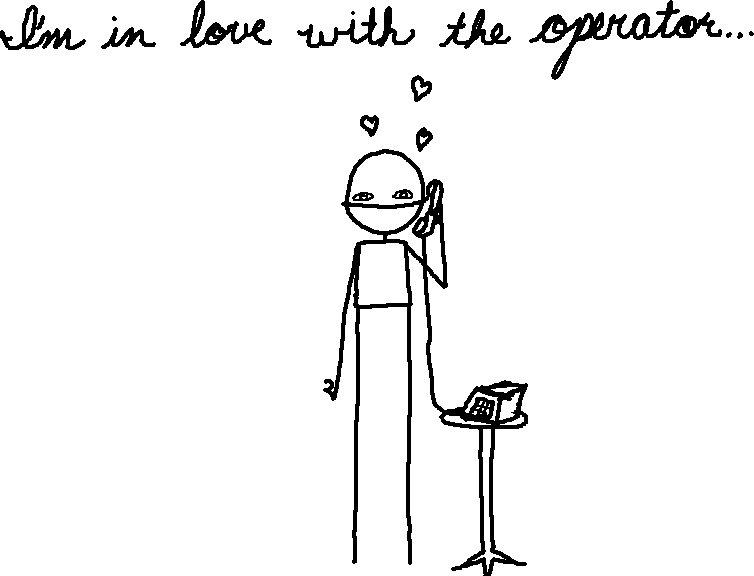 I'm in love with the operator...